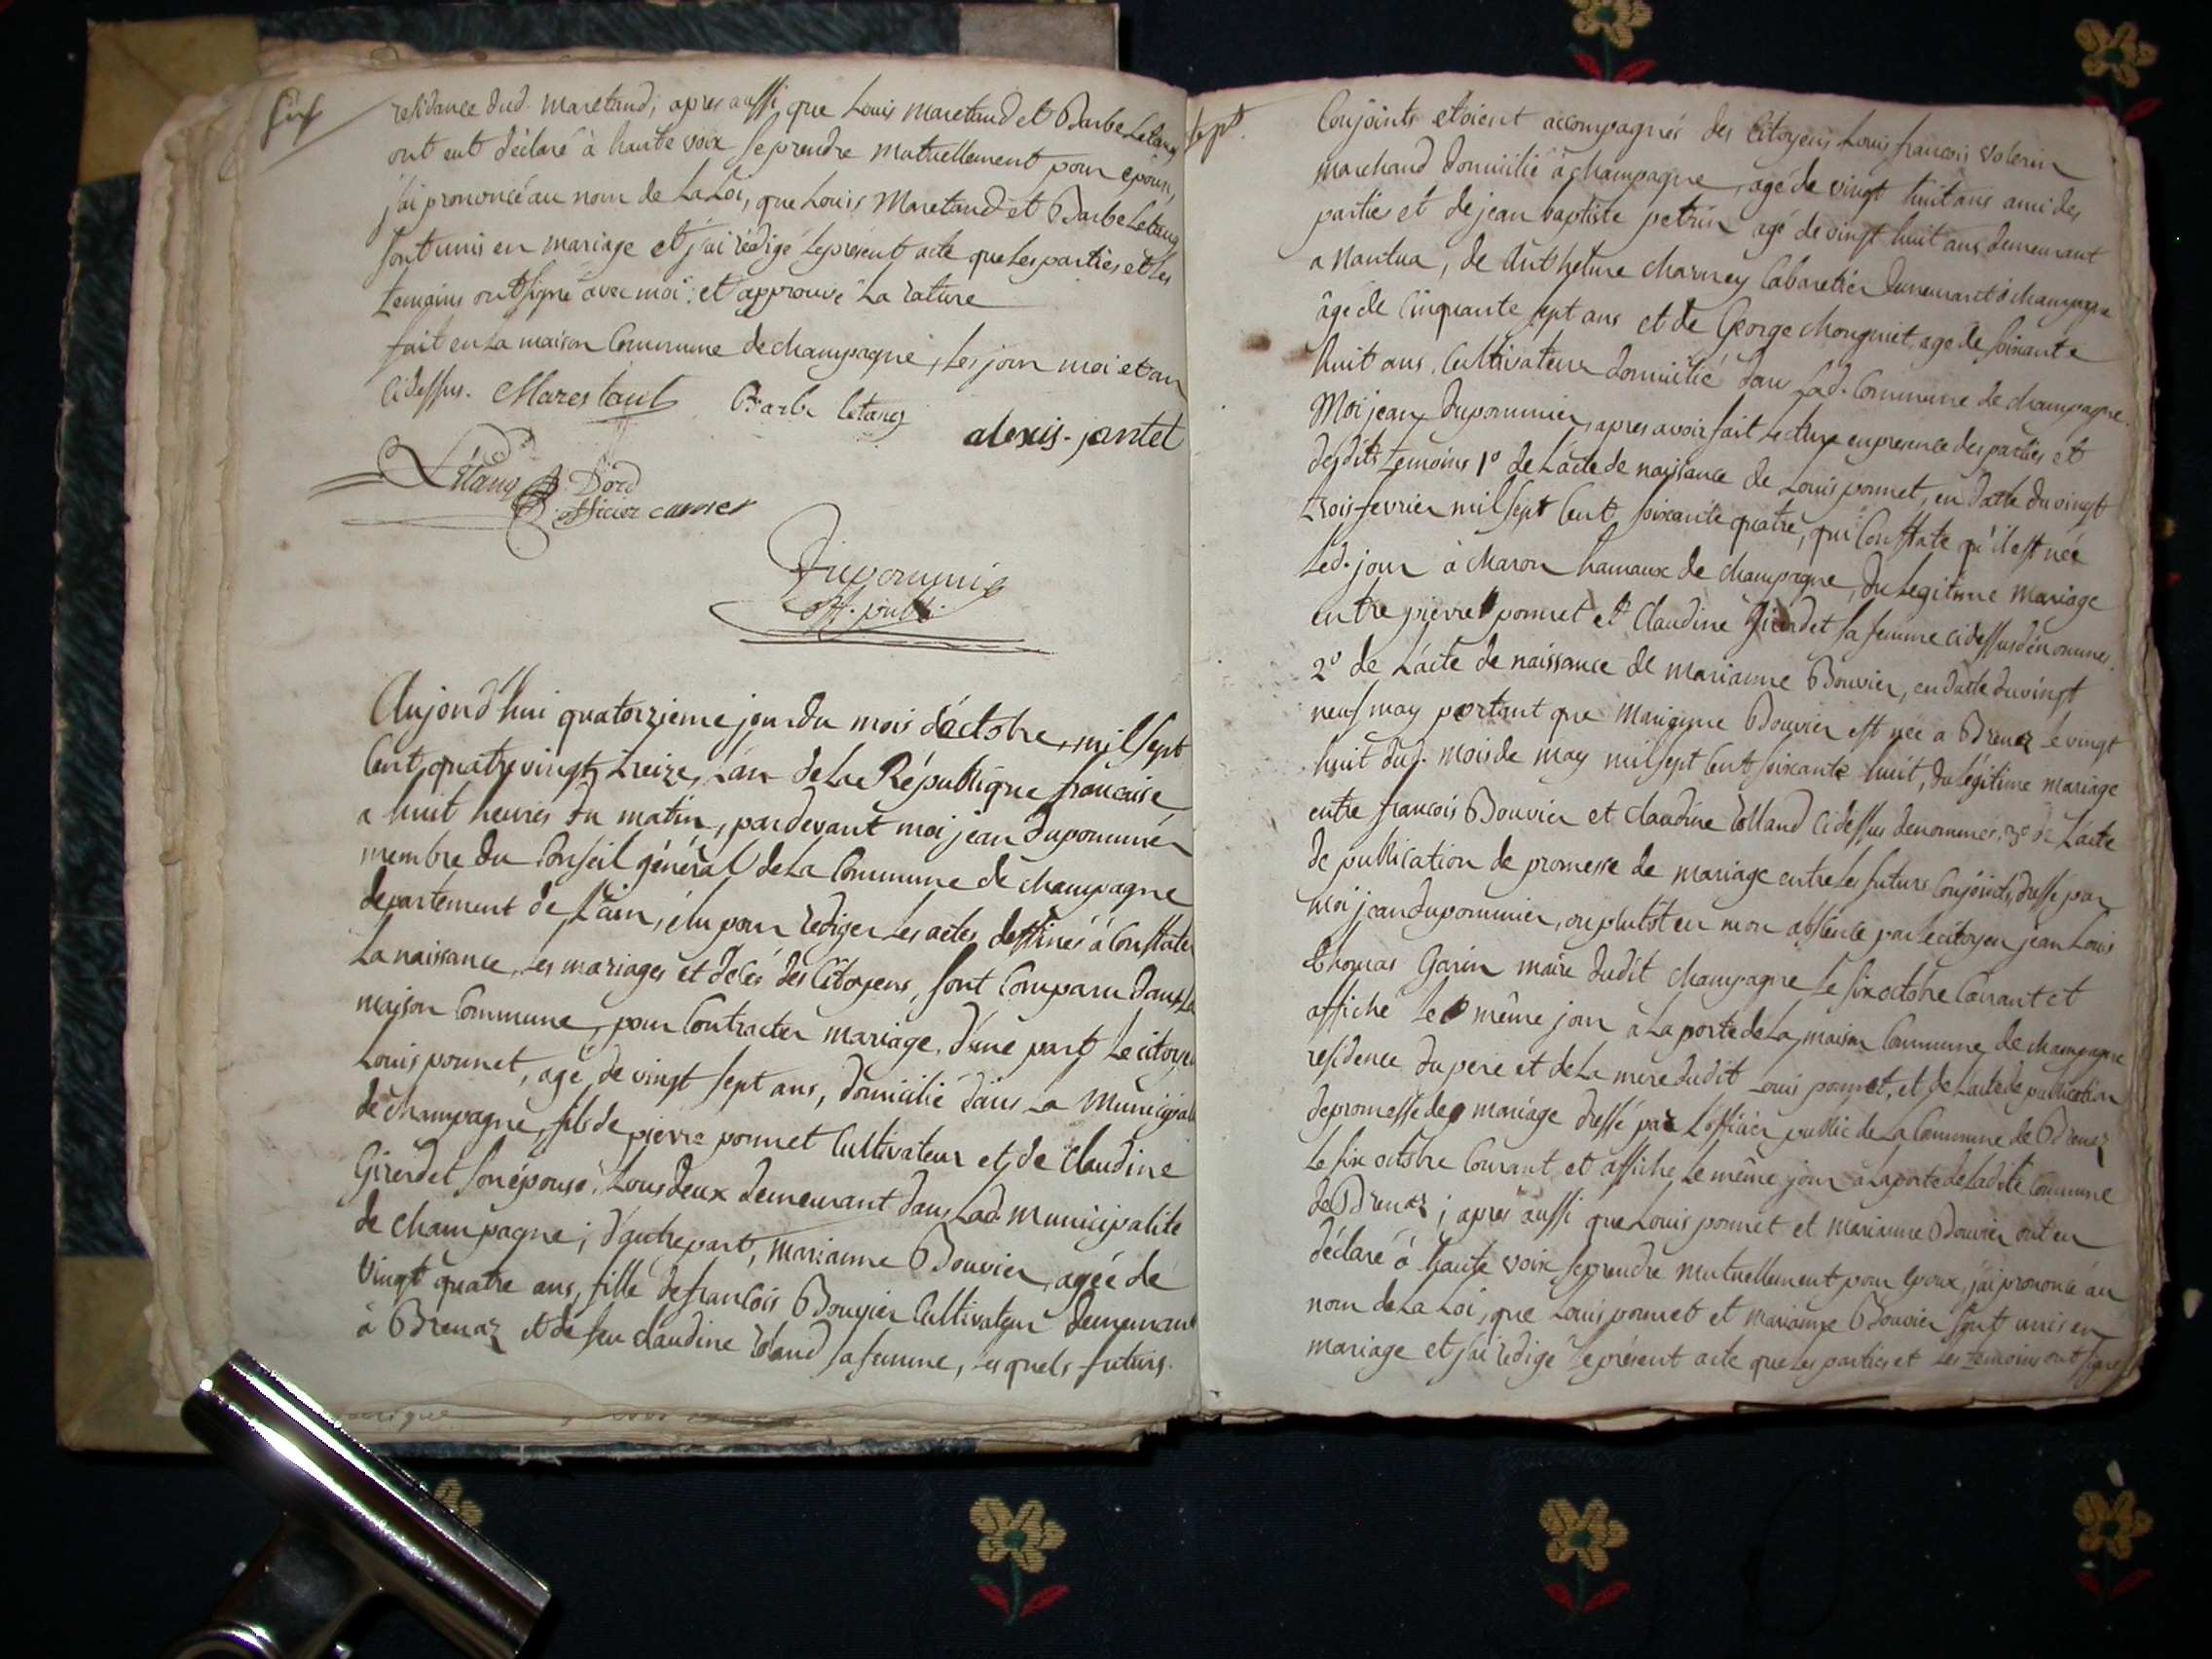 six
residance dud. maretaud; apres aussi que Louis maretaud et Barbe Letang
ont eut déclaré à haute voix se prendre mutuellement pour epoux,
j'ai prononcé au nom de La Loi, que Louis Maretaud et Barbe Letang
sont unis en mariage et j'ai rédigé Le présent acte que Les parties et Les
temoins ont signé avec moi. et approuvé La rature
fait en La maison Commune de champagne, Les jour moi et an
Ci dessus. Marestaut Barbe letang
alexis-jantet
Létang Dord
officier
Dupommier
off. publ.
Aujourd'hui quatorzieme jour du mois d'octobre, mil sept
Cent quatre vingt treize, L'an de La République francaise
a huit heures du matin, par devant moi jean dupommier
membre du Conseil général de La Commune de champagne
departement de L'ain, élu pour rediger Les actes destinés à Constater
La naissance, Les mariages et décés des Citoyens, sont Comparu dans La
maison Commune, pour Contracter mariage, d'une part Le citoyen
Louis ponnet, agé de vingt sept ans, domicilié dans La Municipal
de champagne, fils de pierre ponnet Cultivateur et de Claudine
Girerdet son épouse. tous deux demeurant dans Lad. municipalité
de champagne; d'autre part, marianne Bouvier, agée de
vingt quatre ans, fille de francois Bouvier Cultivateur demeurant
à Brenaz et de feu claudine roland sa femme, Les quels futurs
sept.
Conjoints etoient accompagnés des Citoyens Louis francois volerin
marchand domicilié à champagne, agé de vingt huit ans ami des
parties et de jean baptiste petrin agé de vingt huit ans demeurant
a Nantua, de Anthelme charney Cabaretier demeurant à champagne
âgé de Cinquante sept ans et de George Monginet, agé de soixante
huit ans, Cultivateur domicilié dans Lad. Commune de champagne.
Moi jean dupommier, apres avoir fait Lecture en presence des parties et
desdits temoins 1º de L'acte de naissance de Louis ponnet, en datte du vingt
trois fevrier mil sept Cent soixante quatre, qui Constate qu'il est née
Led. jour à charon hamaux de champagne, du Legitime mariage
entre pierre ponnet et Claudine Girerdet sa femme ci dessus dénommés.
2º de L'acte de naissance de marianne Bouvier, en datte du vingt
neuf may portant que marianne Bouvier est née a Brenaz Le vingt
huit dud. mois de may mil sept Cent soixante huit, du Légitime mariage
entre francois Bouvier et claudine rolland Ci dessus denommés. 3º de L'acte
de publication de promesse de mariage entre Les futurs Conjoints, dressé par
Moi jean dupommier, ou plutôt en mon absence par Le citoyen jean Louis
thomas Garin maire dudit champagne Le six octobre Courant et
affiché Le même jour à La porte de La maison Commune de champagne
residence du pere et de La mere dudit Louis ponnet, et de L'acte de publication
de promesse de mariage dressé par L'officier public de La Commune de Brenaz
Le six octobre Courant et affiché Le même jour à La porte de Ladite Commune
de Brenaz; apres aussi que Louis ponnet et marianne Bouvier ont eu
déclaré à haute voix se prendre mutuellement pour epoux, j'ai prononcé au
nom de La Loi, que Louis ponnet et marianne Bouvier sont unis en
mariage et j'ai redigé Le présent acte que Les parties et Les temoins ont signé